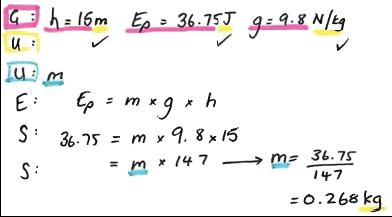 G: h = 15m Ep = 36.75J g = 9.8 N/kg
U: ✓ ✓ ✓
U: m
E: Ep = m × g × h
S: 36.75 = m × 9.8 × 15
S: = m × 147 ⟶ m = 36.75/147
= 0.268 kg